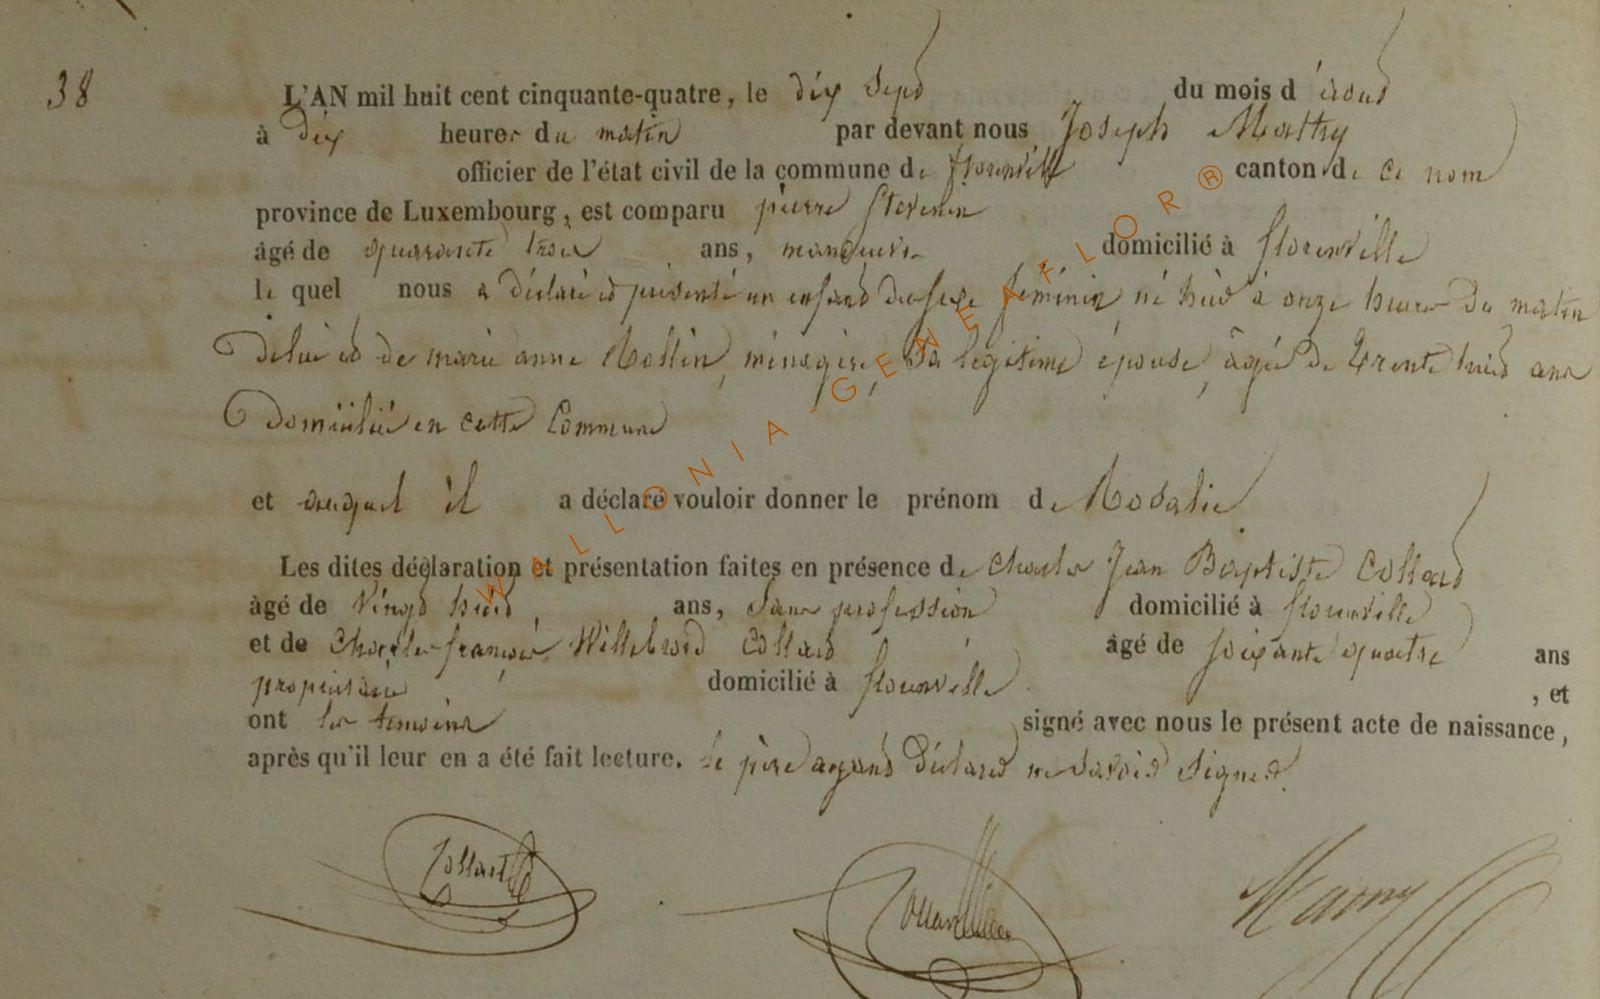 38
L'AN mil huit cent cinquante-quatre, le dix sept du mois d'août
à Dix heures du matin par devant nous Joseph Mathy
officier de l'état civil de la commune de florenville canton de ce nom
province de Luxembourg, est comparu pierre Stevenin
âgé de quarante trois ans, manœuvre domicilié à florenville
le quel nous a déclaré et présenté un enfant du sexe féminin né hier à onze heures du matin
de lui et de marie anne Rollin, ménagère, sa légitime épouse, âgée de trente huit ans
Domiciliée en cette Commune
et auquel il a déclaré vouloir donner le prénom de Rosalie
Les dites déclaration et présentation faites en présence de Charles Jean Baptiste Collard
âgé de Vingt huit ans, Sans profession domicilié à florenville
et de Charles françois Willebrord Collard âgé de soixante quatre ans
propriétaire domicilié à florenville , et
ont les témoins signé avec nous le présent acte de naissance,
après qu'il leur en a été fait lecture. le père ayant Déclaré ne savoir signer.
WALLONIA-GENEAFLOR®